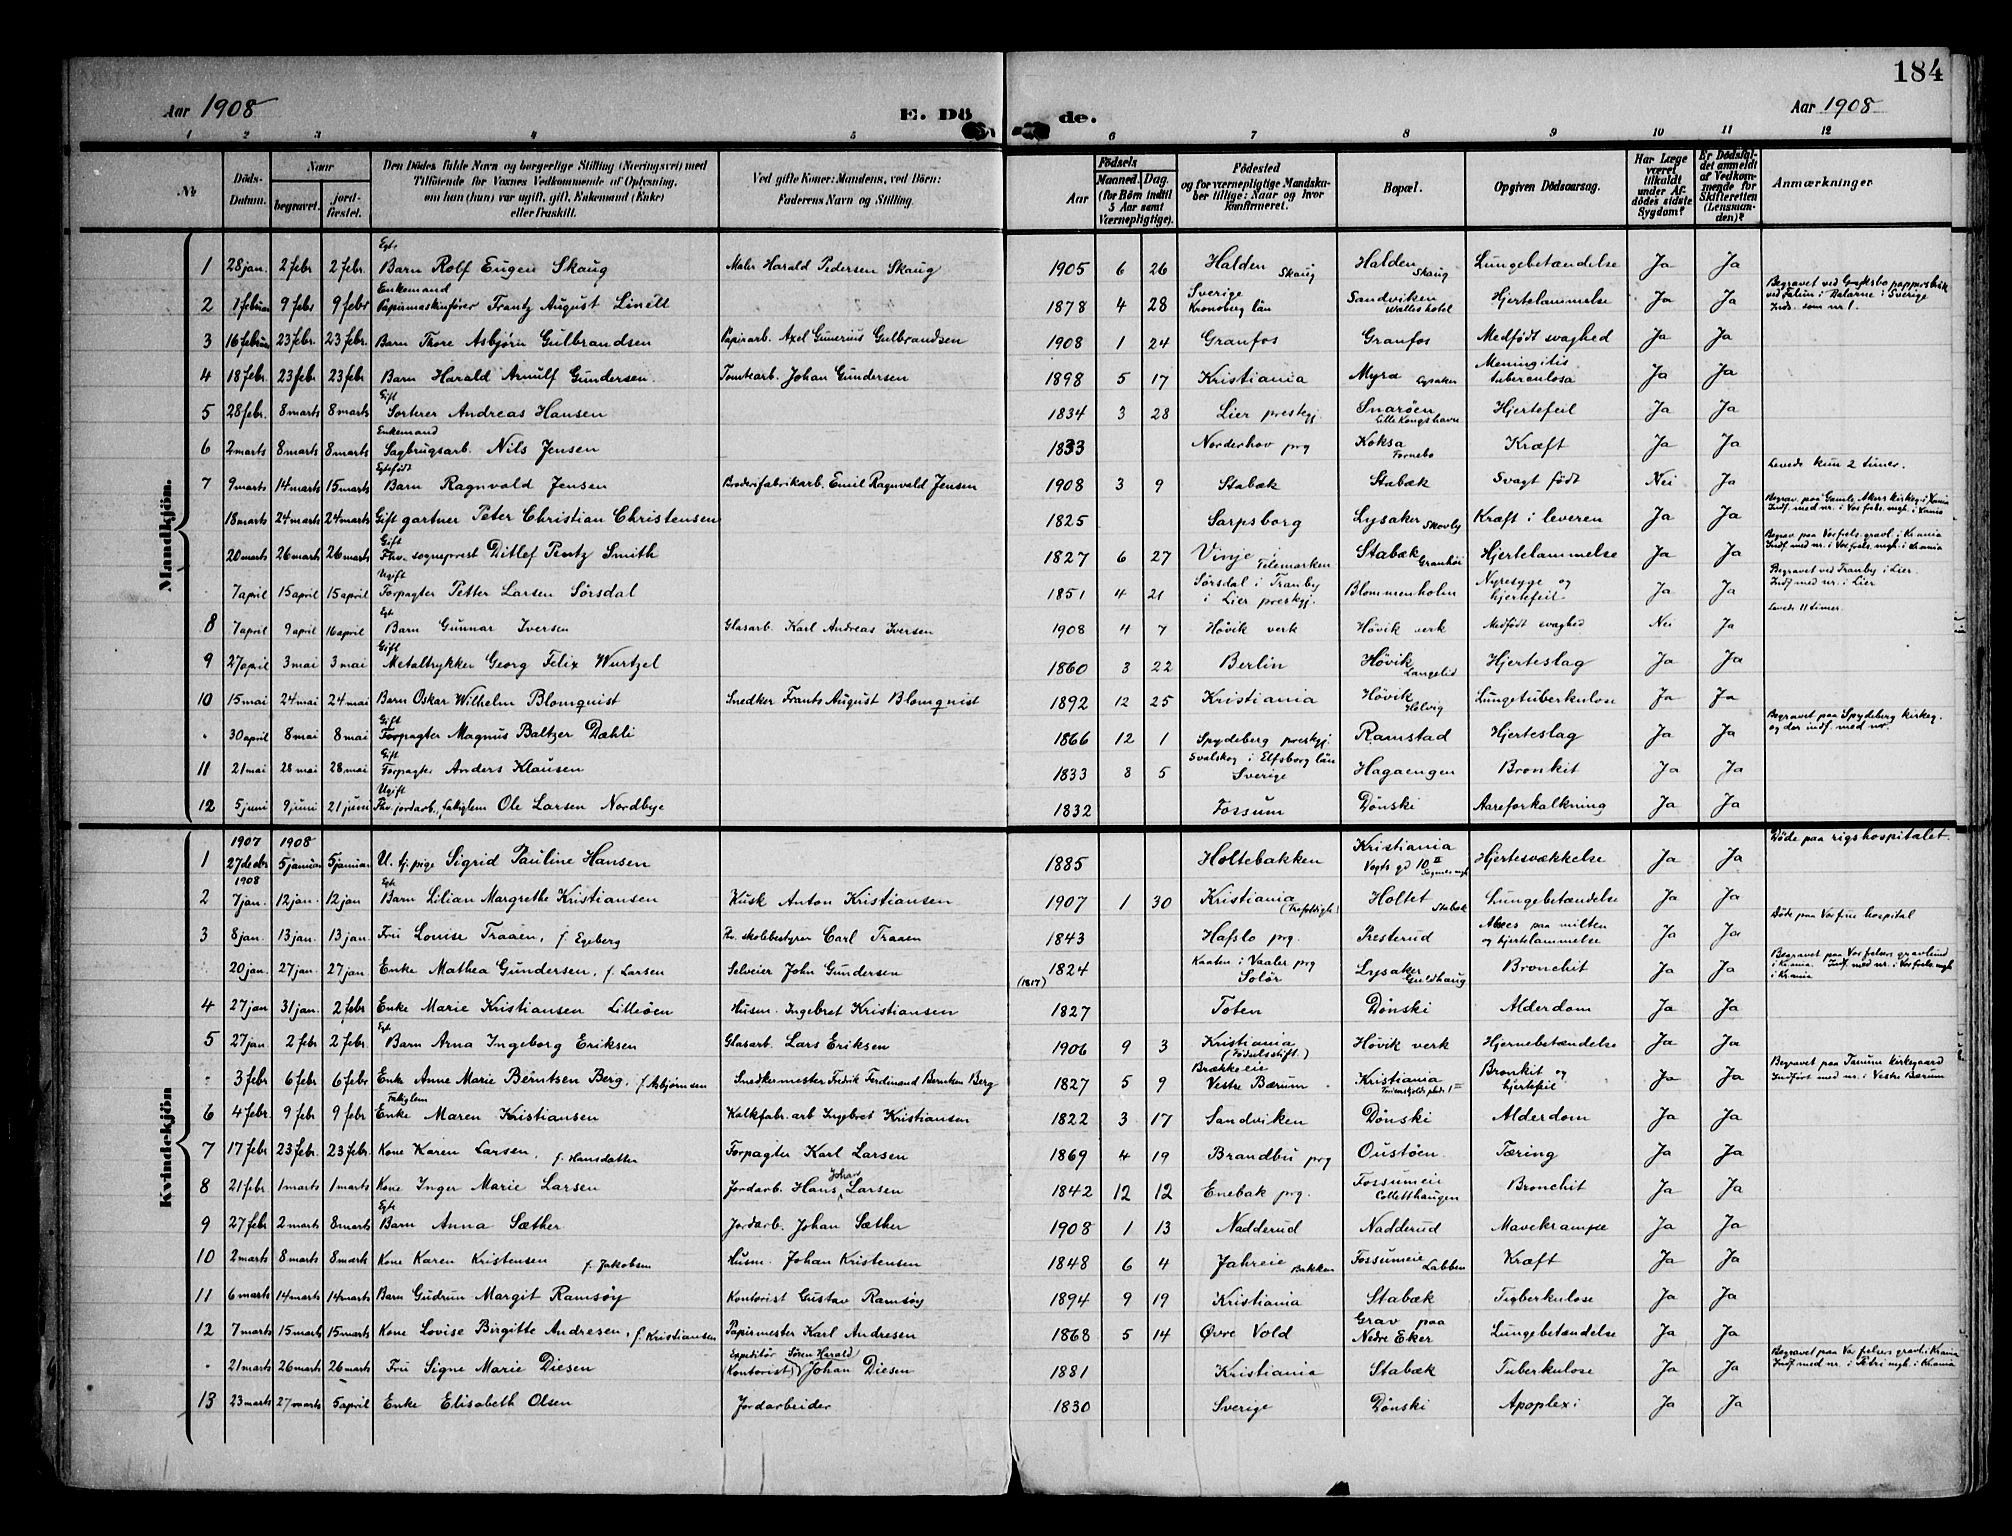 184
Aar 1908 E. Dö de. Aar 1908
1 2 3 4 5 6 7 8 9 10 11 12
No. Döds-Datum. Naar begravet. jord-fæstet. Den Dödes fulde Navn og borgerlige Stilling (Næringsvei) med Tilföiende for Voxnes Vedkommende af Oplysning, om han (hun) var ugift, gift, Enkemand (Enke) eller fraskilt. Ved gifte Koner: Mandens, ved Börn: Faderens Navn og Stilling. Födsels Aar Maaned. Dag. (for Börn indtil 5 Aar samt Værnepligtige). Födested og for værnepligtige Mandskaber tillige: Naar og hvor konfirmeret. Bopæl. Opgiven Dödsaarsag. Har Læge været tilkaldt under Afdödes sidste Sygdom? Er Dödsfaldet anmeldt af Vedkommende for Skifteretten (Lensmanden)? Anmærkninger
Mandkjön.
1 28 jan. 2 febr 2 febr. Egte Barn Rolf Eugen Skaug Maler Harald Pedersen Skaug 1905 6 26 Halden Skaug Halden Skaug Lungebetændelse Ja Ja
2 1 februar 9 febr 9 febr Enkemand Papirmaskinfører Frantz August Linell 1878 4 28 Sverige Kronoberg län Sandviken Walles hotel Hjertelammelse Ja Ja Begravet ved Grycksbo pappersbruk ved Falun i Dalarne i Sverige Indf. som nr. 1.
3 16 februar 23 febr. 23 febr. Barn Thore Asbjørn Gulbrandsen Papirarb. Axel Gunerius Gulbrandsen 1908 1 24 Granfos Granfos Medfødt svaghed Ja Ja
4 18 febr. 23 febr 23 febr Barn Harald Arnulf Gundersen. Tomtearb. Johan Gundersen 1898 5 17 Kristiania Myra Lysaker Meningitis tuberculosa Ja Ja
5 28 febr. 8 marts 8 marts Gift Sorterer Andreas Hansen 1834 3 28 Lier prestegj. Snarøen Lille Kongshavn Hjertefeil Ja Ja
6 2 marts 8 marts 8 marts Enkemand Sagbrugsarb. Nils Jensen 1833 Norderhov prg Koksa Fornebo Kræft Ja Ja
7 9 marts 14 marts 15 marts Egtefødt Barn Ragnvald Jensen Broderifabrikarb. Emil Ragnvald Jensen 1908 3 9 Stabæk Stabæk Svagt født Nei Ja Levede kun 2 timer.
18 marts 24 marts 24 marts Gift gartner Peter Christian Christensen 1825 Sarpsborg Lysaker Skovly Kræft i leveren Ja Ja Begrav. paa Gamle Akers kirkeg. i Krania Indf. med nr. i Vor frels. mgh. i Krania
20 marts 26 marts 26 marts Gift Fhv. sogneprest Ditlef Pentz Smith 1827 6 27 Vinje i Telemarken Stabæk Granhöi Hjertelammelse Ja Ja Begrav paa Vor frels. gravl. i Krania Indf. med nr. i Vor frels. mgh. i Krania
. 7 april 15 april 15 april Ugift Forpagter Petter Larsen Sørsdal 1851 4 21 Sørsdal i Tranby i Lier preskgj. Blommenholm Nyresyge og hjertefeil Ja Ja Begravet ved Tranby i Lier. Indf med nr. i Lier
8 7 april 9 april 16 april Egt Barn Gunnar Iversen Glasarb. Karl Andreas Iversen 1908 4 7 Høvik verk Høvik verk Medfødt svaghed Nei Ja Levede 11 timer.
9 27 april 3 mai 3 mai Gift Metaltrykker Georg Felix Wurtzel 1860 3 22 Berlin Høvik Langelid Hjerteslag Ja Ja
10 15 mai 24 mai 24 mai Barn Oskar Wilhelm Blomquist Snedker Frants August Blomquist 1892 12 25 Kristiania Høvik Helvig Lungetuberkulose Ja Ja
. 30 april 8 mai 8 mai Gift Forpagter Magnus Baltzer Dæhli 1866 12 1 Spydeberg preskgj. Ramstad Hjerteslag Ja Ja Begravet paa Spydeberg kirkeg. og der indf. med nr.
11 21 mai 28 mai 28 mai Gift Forpagter Anders Klausen 1833 8 5 Svalskog i Elfsborg län Sverige Hagaengen Bronkit Ja Ja
12 5 juni 9 juni 21 juni Ugift Fhv. jordarb., fattiglem Ole Larsen Nordbye 1832 Fossum Dønski Aareforkalkning Ja Ja
Kvindekjön
1 1907 27 decbr 1908 5 januar 5 januar U. tj. pige Sigrid Pauline Hansen 1885 Holtebakken Kristiania Vogts gd 10 II Sagenes mgh Hjertesvækkelse Ja Ja Døde paa rigshospitalet.
2 1908 7 jan. 12 jan. 12 jan Egt Barn Lilian Margrethe Kristiansen Kusk Anton Kristiansen 1907 1 30 Kristiania (Trefoldigh) Holtet Stabæk Lungebetændelse Ja Ja
3 8 jan. 13 jan. 13 jan. Fru Louise Traaen, f. Egeberg Fhv. skolebestyrer Carl Traaen 1843 Hafslo prg. Presterud Absces paa milten og hjertelammelse Ja Ja Døde paa Vor frue hospital
. 20 jan. 27 jan. 27 jan Enke Mathea Gundersen, f. Larsen Selveier John Gundersen (1817) 1824 Kaaten i Vaaler prg Solör Lysaker Guldhaug Bronchit Ja Ja Begravet paa Vor Frelsers gravlund i Krania. Indf. med nr. i Vor frels. mgh i Krania
4 27 jan 31 jan. 2 febr Enke Marie Kristiansen Lilleöen Husm. Ingebret Kristiansen 1827 Toten Dønski Alderdom Ja Ja
5 27 jan. 2 febr 2 febr. Egt Barn Arna Ingeborg Eriksen Glasarb. Lars Eriksen 1906 9 3 Kristiania (Fødselsstift.) Høvik verk Hjernebetændelse Ja Ja
. 3 febr 6 febr 6 febr Enke Anne Marie Berntsen Berg, f. Asbjørnsen Snedkermester Fredik Ferdinand Berntsen Berg 1827 5 9 Brækkeeie Vestre Bærum Kristiania Bronkit og hjertefeil Ja Ja Begravet paa Tanum kirkegaard Indført med nr. i Vestre Bærum
6 4 febr. 9 febr 9 febr Fattiglem Enke Maren Kristiansen Kalkfabr. arb Ingbret Kristiansen 1822 3 17 Sandviken Dønski Alderdom Ja Ja
7 17 febr 23 febr. 23 febr. Kone Karen Larsen, f. Hansdatter Forpagter Karl Larsen 1869 4 19 Brandbu prg Oustøen. Tæring Ja Ja
8 21 febr. 1 marts 1 marts Kone Inger Marie Larsen Jordarb. Hans Johan Larsen 1842 12 12 Enebak prg. Fossumeie Colletthaugen Bronchit Ja Ja
9 27 febr 2 marts 8 marts Egt Barn Anna Sæther Jordarb. Johan Sæther 1908 1 13 Nadderud Nadderud Mavekrampe Ja Ja
10 2 marts 8 marts 8 marts Kone Karen Kristensen f. Jakobsen Husm. Johan Kristensen 1848 6 4 Jahreie Bakken Fossumeie Labben Kræft Ja Ja
11 6 marts 14 marts 14 marts Barn Gudrun Margit Ramsøy Kontorist Gustav Ramsøy 1894 9 19 Kristiania Stabæk Tuberkulose Ja Ja
12 7 marts 15 marts 15 marts Kone Lovise Birgitte Andresen, f. Kristiansen Papirmester Karl Andresen 1868 5 14 Øvre Vold Grav paa Nedre Eker Lungebetændelse Ja Ja
. 21 marts 26 marts 26 marts Fru Signe Marie Diesen Expeditör Sören Harald (Kontorist) Johan Diesen 1881 Kristiania Stabæk Tuberkulose Ja Ja Begravet paa Vor frelsers gravl. i Krania Indf med nr. i Petri mgh. i Krania
13 23 marts 27 marts 5 april Enke Elisabeth Olsen Jordarbeider 1830 Sverige Dønski Apoplexi Ja Ja